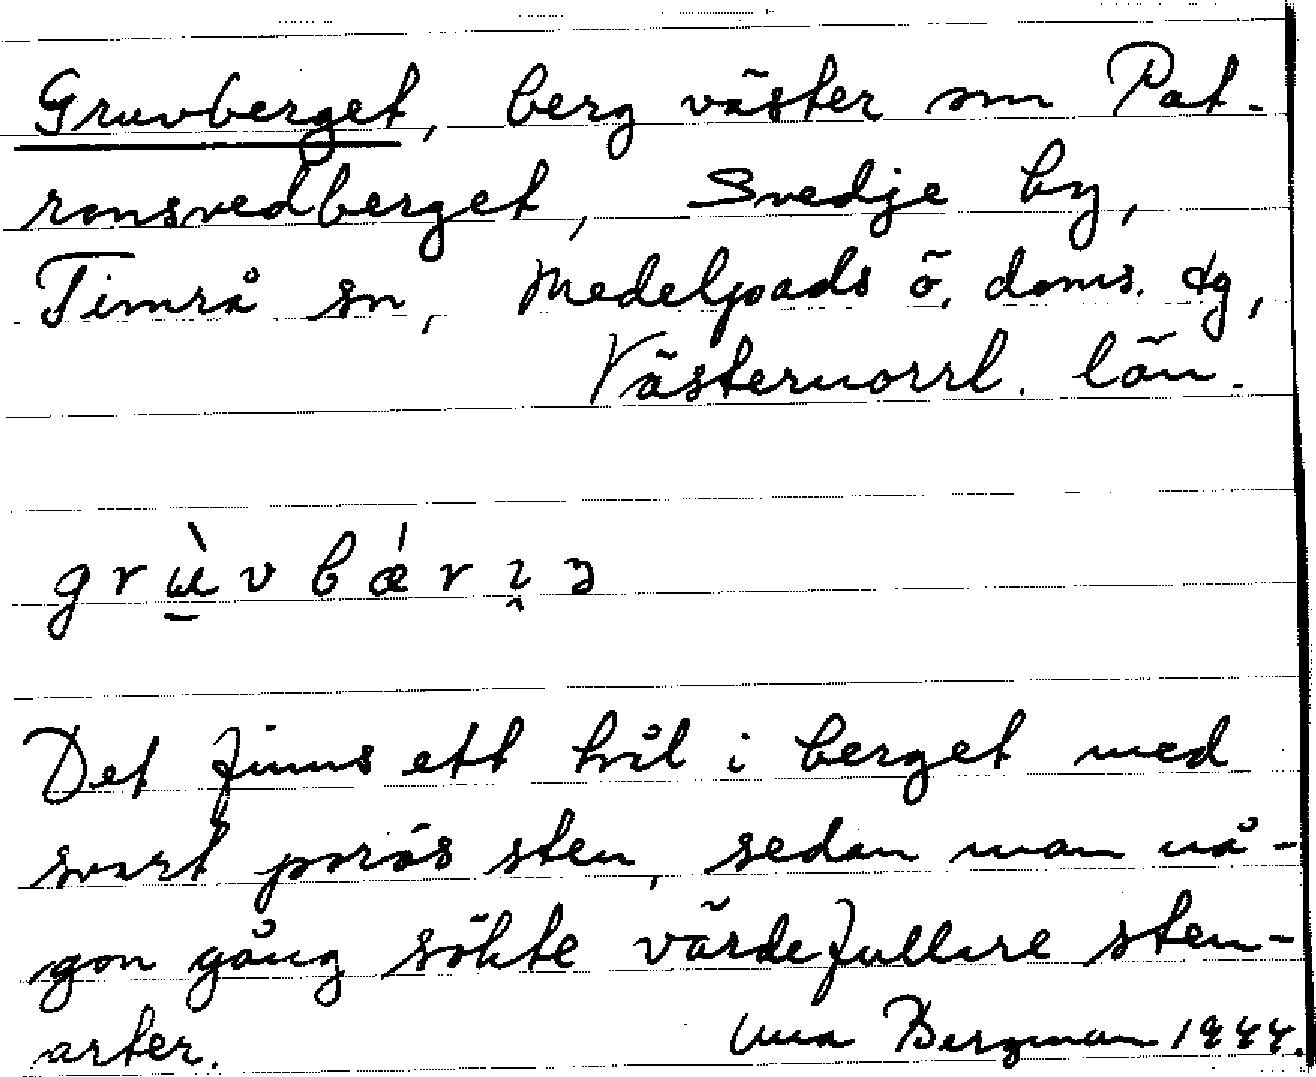 Gruvberget, berg väster om Pat-
ronsvedberget, Svedje by,
Timrå sn, Medelpads ö. doms. dg,
Västernorrl. län.
grùvbǽrʅ̭ə
Det finns ett hål i berget med
svart porös sten, sedan man nå-
gon gång sökte värdefullare sten-
arter. Unna Bergman 1944.